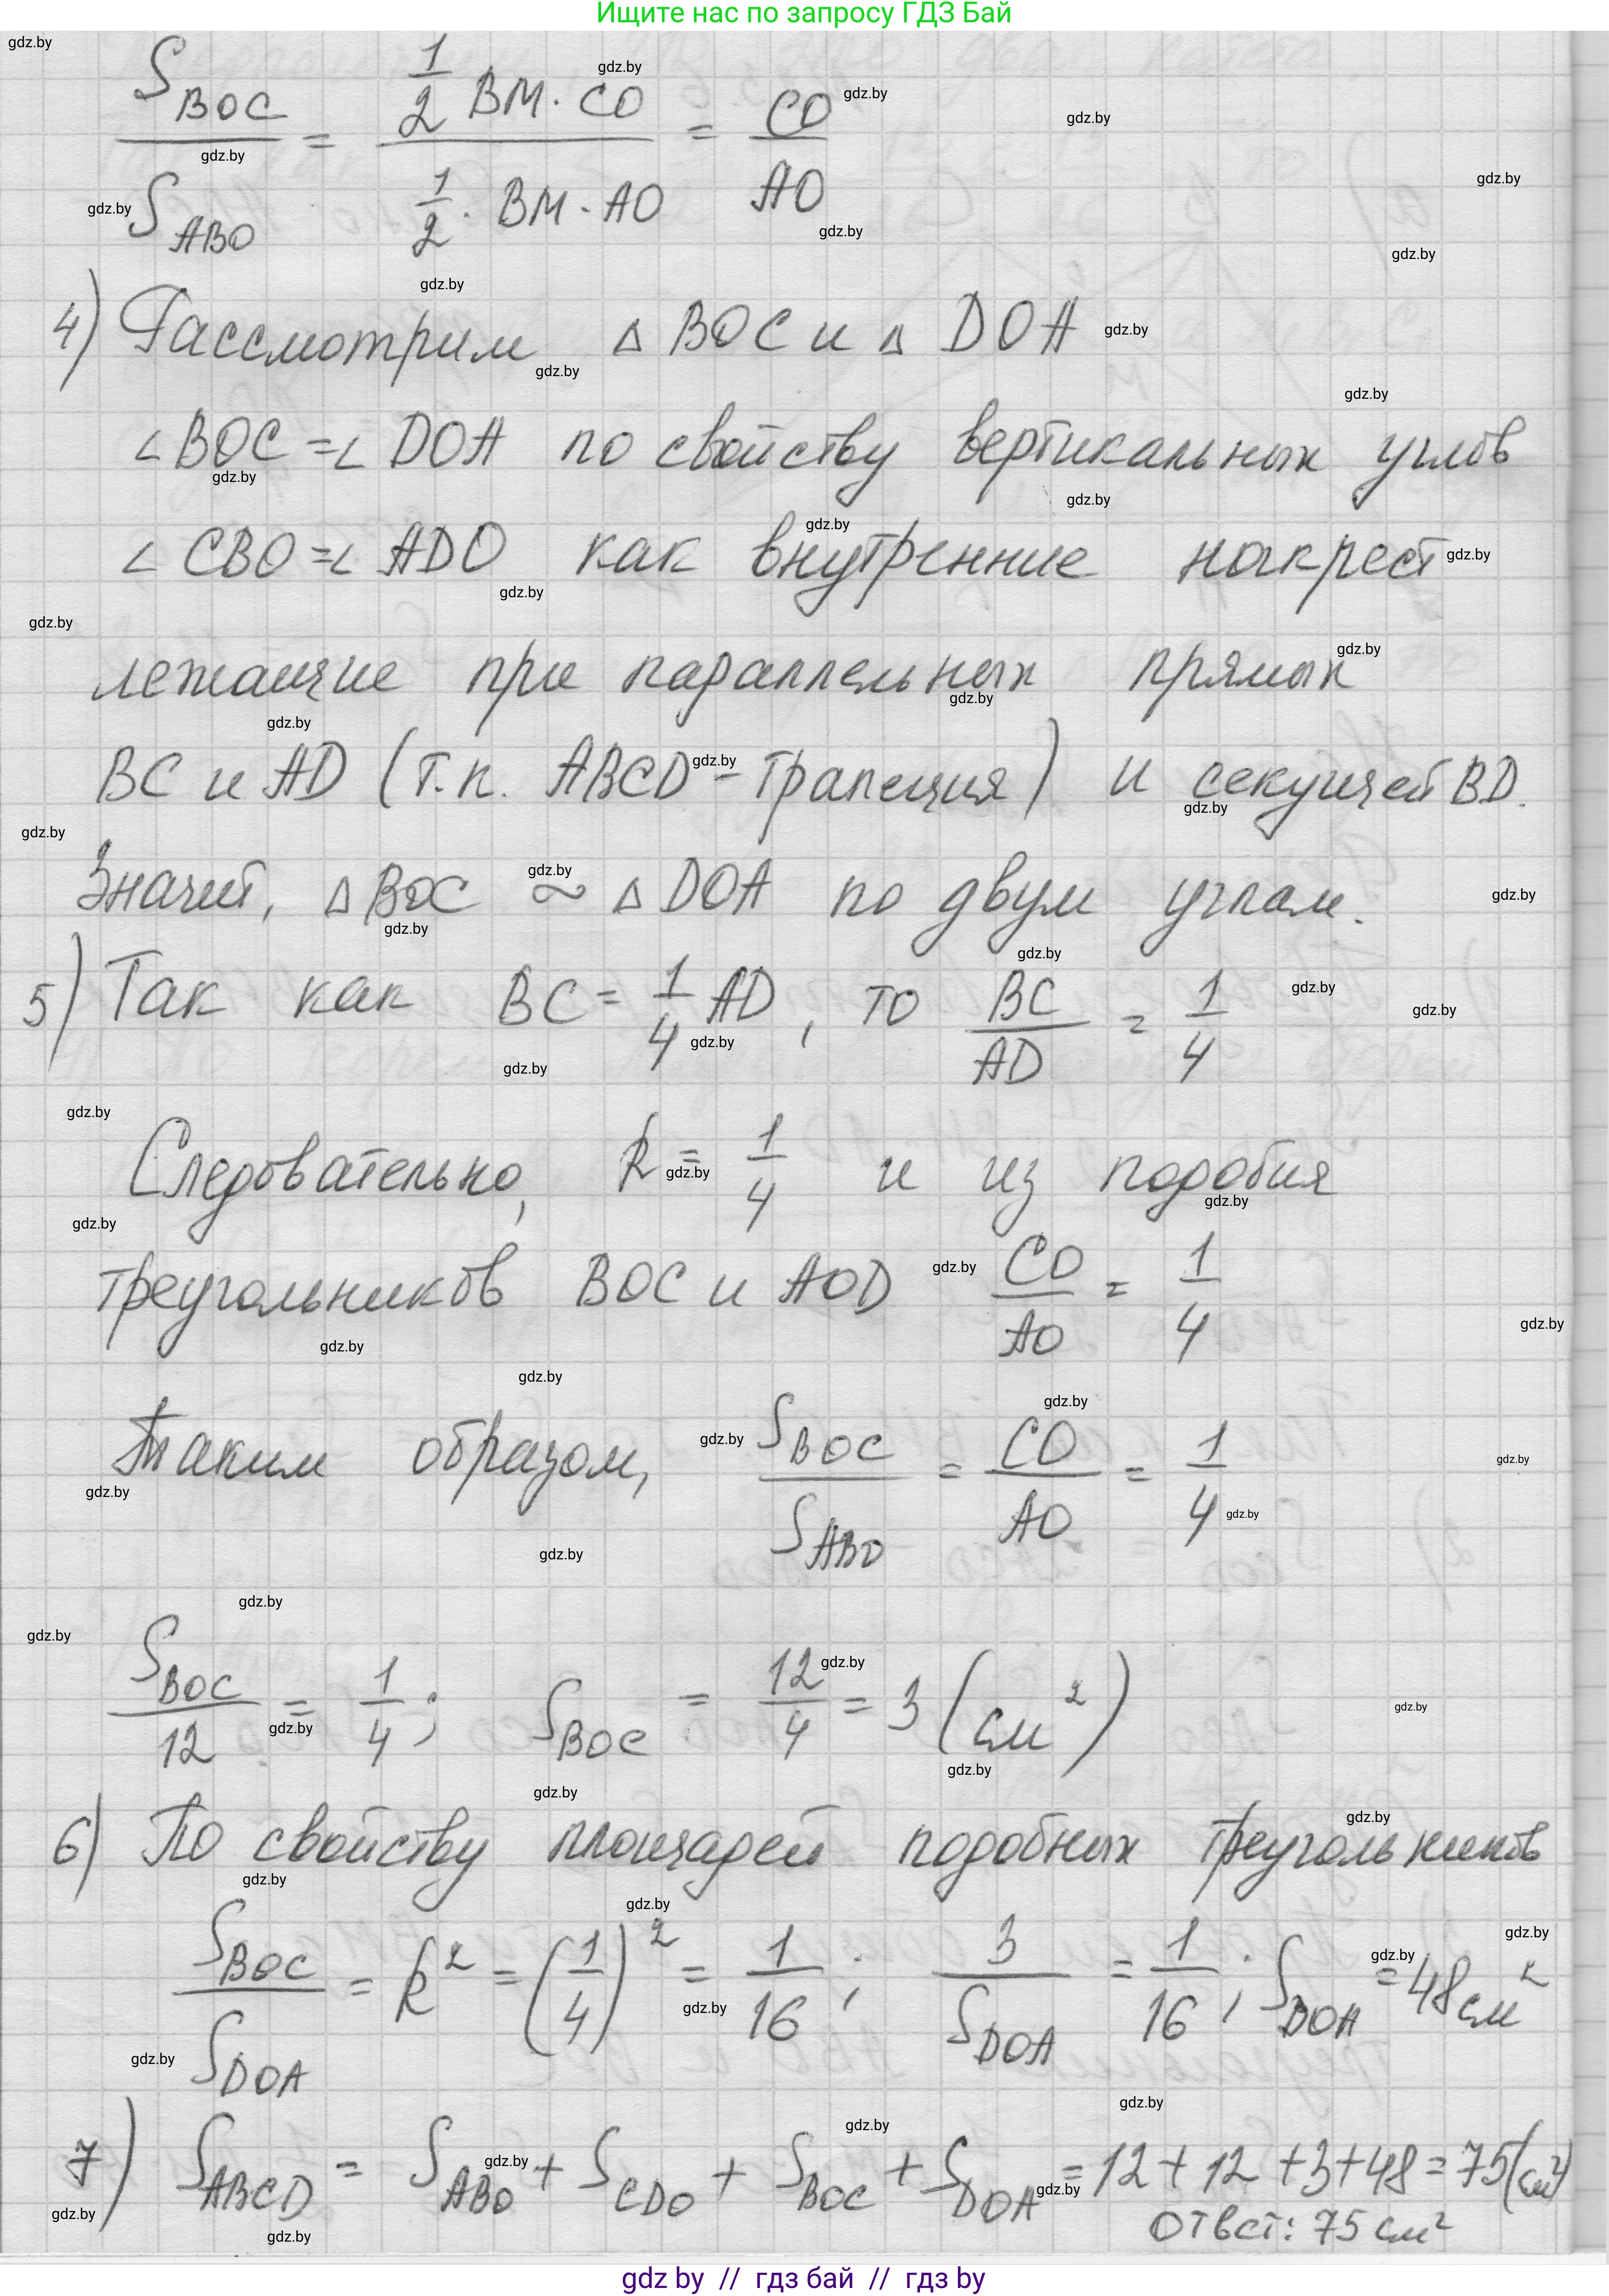 Ищите нас по запросу ГДЗ Бай
S_BOC / S_ABO = (1/2 BM · CO) / (1/2 · BM · AO) = CO / AO
4) Рассмотрим △ BOC и △ DOA
∠ BOC = ∠ DOA по свойству вертикальных углов
∠ CBO = ∠ ADO как внутренние накрест
лежащие при параллельных прямых
BC и AD (т.к. ABCD - трапеция) и секущей BD.
Значит, △ BOC ~ △ DOA по двум углам.
5) Так как BC = 1/4 AD, то BC / AD = 1/4
Следовательно, k = 1/4 и из подобия
треугольников BOC и AOD CO / AO = 1/4
Таким образом, S_BOC / S_ABO = CO / AO = 1/4
S_BOC / 12 = 1/4; S_BOC = 12/4 = 3 (см²)
6) По свойству площадей подобных треугольников
S_BOC / S_DOA = k² = (1/4)² = 1/16; 3 / S_DOA = 1/16; S_DOA = 48 см²
7) S_ABCD = S_ABO + S_CDO + S_BOC + S_DOA = 12 + 12 + 3 + 48 = 75 (см²)
Ответ: 75 см²
gdz by // гдз бай // гдз by